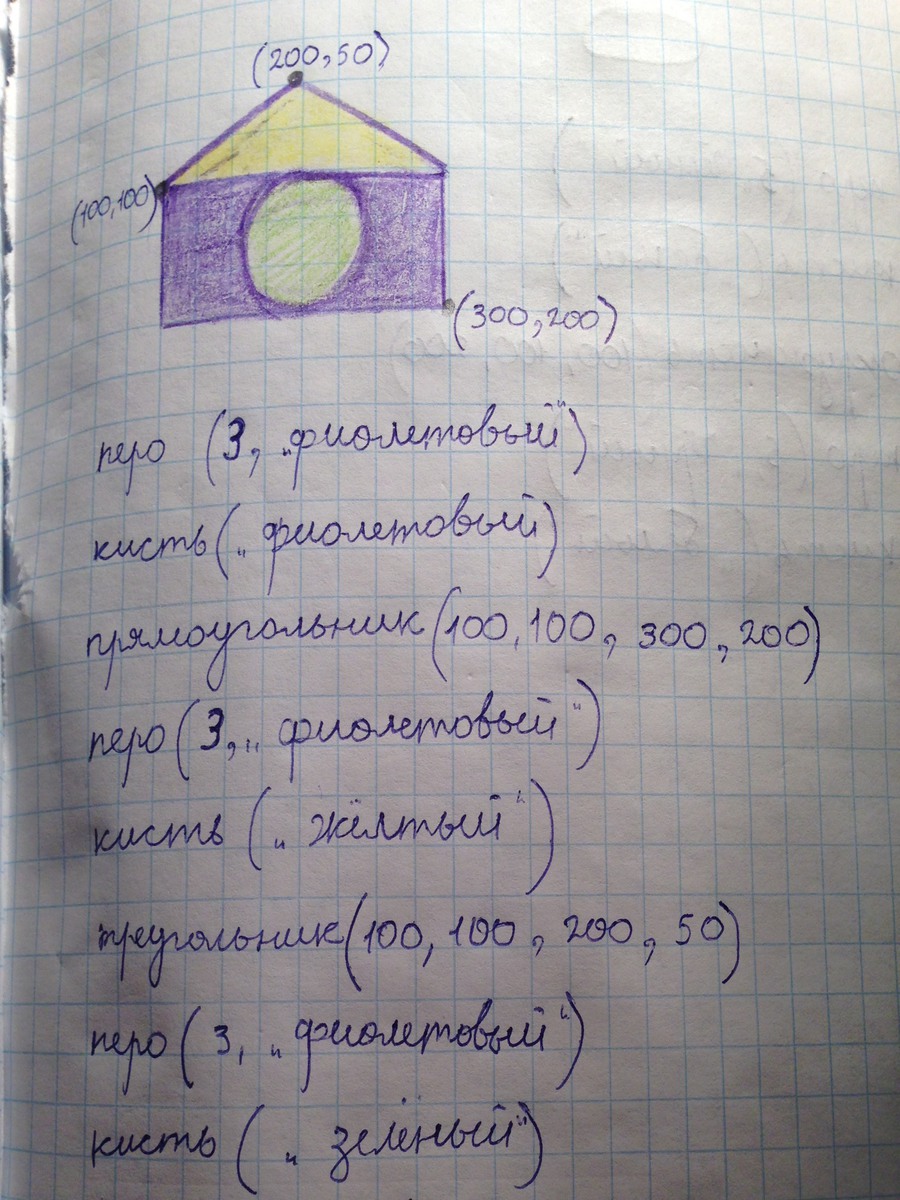 (200,50)
(100,100)
(300,200)
перо (3, „фиолетовый“)
кисть („фиолетовый)
прямоугольник(100,100, 300, 200)
перо(3, „фиолетовый“)
кисть („жёлтый“)
треугольник(100, 100, 200, 50)
перо(3, „фиолетовый“)
кисть („зелёный“)